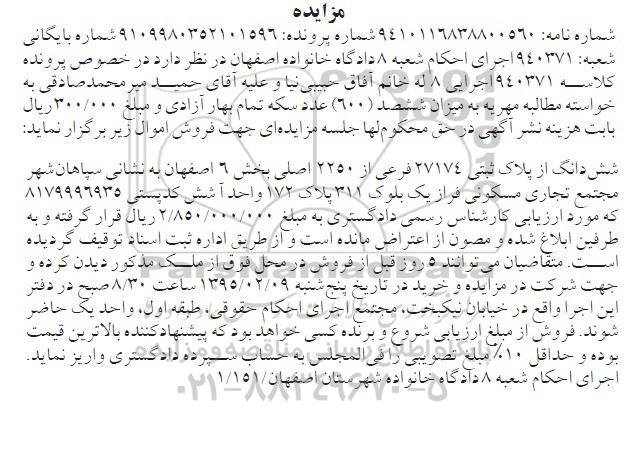 مزایده
شماره نامه: ۹۴۱۰۱۱۶۸۳۸۸۰۰۵۶۰ شماره پرونده: ۹۱۰۹۹۸۰۳۵۲۱۰۱۵۹۶ شماره بایگانی
شعبه: ۹۴۰۳۷۱ اجرای احکام شعبه ۸ دادگاه خانواده اصفهان در نظر دارد در خصوص پرونده
کلاسه ۹۴۰۳۷۱ اجرایی ۸ له خانم آفاق حبیبی‌نیا و علیه آقای حمید میرمحمدصادقی به
خواسته مطالبه مهریه به میزان ششصد (۶۰۰) عدد سکه تمام بهار آزادی و مبلغ ۳۰۰/۰۰۰ ریال
بابت هزینه نشر آگهی در حق محکوم‌لها جلسه مزایده‌ای جهت فروش اموال زیر برگزار نماید:
شش‌دانگ از پلاک ثبتی ۲۷۱۷۴ فرعی از ۲۲۵۰ اصلی بخش ۶ اصفهان به نشانی سپاهان‌شهر
مجتمع تجاری مسکونی فراز یک بلوک ۳۱۱ پلاک ۱۷۲ واحد آ شش کدپستی ۸۱۷۹۹۹۶۹۳۵
که مورد ارزیابی کارشناس رسمی دادگستری به مبلغ ۲/۸۵۰/۰۰۰/۰۰۰ ریال قرار گرفته و به
طرفین ابلاغ شده و مصون از اعتراض مانده است و از طریق اداره ثبت اسناد توقیف گردیده
است. متقاضیان می‌توانند ۵ روز قبل از فروش در محل فوق از ملک مذکور دیدن کرده و
جهت شرکت در مزایده و خرید در تاریخ پنج‌شنبه ۱۳۹۵/۰۲/۰۹ ساعت ۸/۳۰ صبح در دفتر
این اجرا واقع در خیابان نیکبخت، مجتمع اجرای احکام حقوقی، طبقه اول، واحد یک حاضر
شوند. فروش از مبلغ ارزیابی شروع و برنده کسی خواهد بود که پیشنهادکننده بالاترین قیمت
بوده و حداقل ۱۰٪ مبلغ تصویبی را فی‌المجلس به حساب سپرده دادگستری واریز نماید.
اجرای احکام شعبه ۸ دادگاه خانواده شهرستان اصفهان/۱/۱۵۱
۰۲۱-۸۸۳۴۹۶۷۰-۵